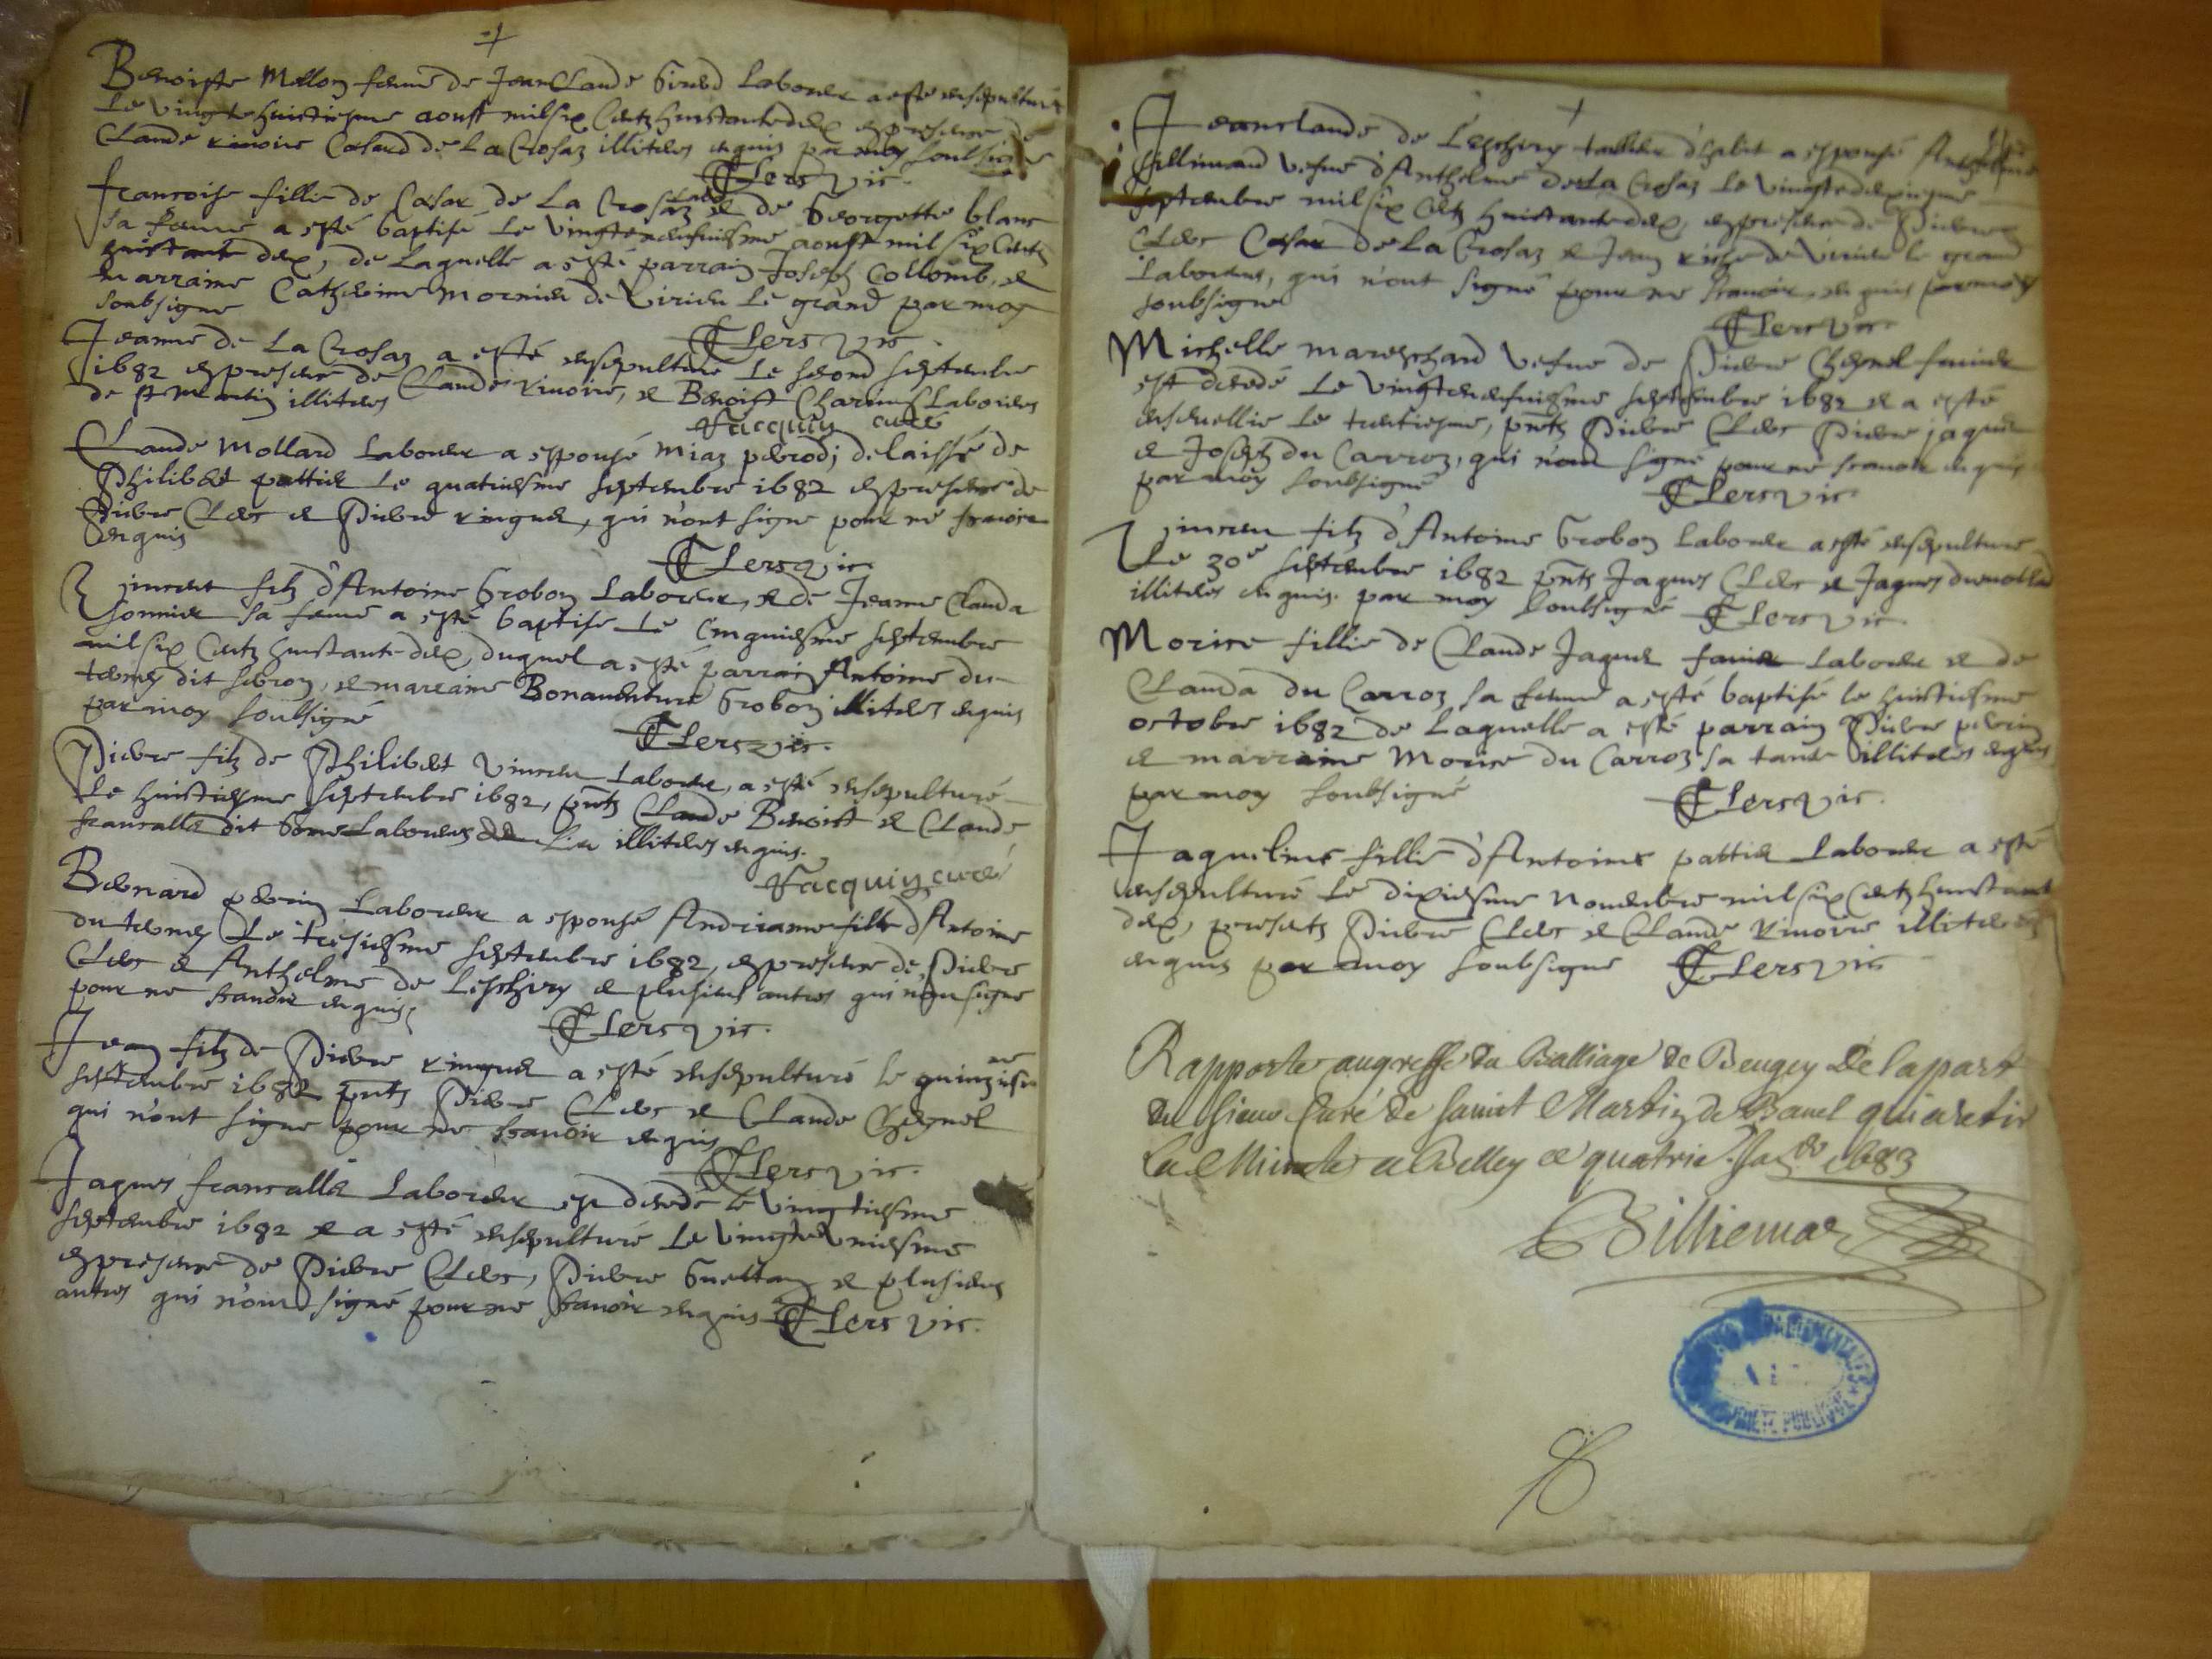 Benoiste Mellon feme de Jean Claude Girod Laboureur a esté ensepulturée
Le vingt huictiesme aoust mil six Centz huictante deux en presence de
Claude Rinoire Cesard de La Crosaz illiteres enquis par moy soubsigné
CLerc vic.
francoise fillie de Cesar de La Crosaz Lab & de Georgette blanc
sa feme a esté baptisé Le vingtneufuiesme aoust mil six Centz
huictante deux, de Laquelle a esté parrain Joseph Collomb, et
marraine Catherine Mornieu de Virieu Le grand par moy
soubsigné
CLerc vic
Jeanne de La Crosaz a esté ensepulturé Le second septembre
1682 en presence de Claude Rinoire, et Benoist Charmeuf Laboureurs
de St Martin illiteres
Jacquin curé
Claude Mollard Laboureur a espousé Miaz perrod; delaissé de
Philibert pattier Le quatriesme septembre 1682 en presence de
Pierre Clerc et Pierre ringuet, qui n'ont signé pour ne scauoir
Enquis
CLerc vic
Vincent filz d'Antoine Grobon Laboureur, et de Jeanne Clauda
sonnier sa feme a esté baptisé Le Cinquiesme septembre
mil six Centz huictante deux, duquel a esté parrain Antoine du
terney dit scbron, et marraine Bonauenture Grobon illiteres enquis
par moy soubsigné
CLerc vic.
Pierre filz de Philibert Vincent Laboureur, a esté ensepulturé
Le huictiesme septembre 1682, pntz Claude Benoist et Claude
francallet dit Laboureurs de Lieu illiteres enquis.
Jacquin curé
Bernard perrin Laboureur a espousé Andrianne fille d'Antoine
du terney Le treiziesme septembre 1682, en presence de, Pierre
Clerc et Anthelme de Leschiry et plusieurs autres qui n'ont signé
pour ne scauoir enquis
CLerc vic.
Jean filz de Pierre ringuet a esté ensepulturé le quinziesme
septembre 1682 pntz Pierre Clerc et Claude Cheynel
qui n'ont signé pour ne scauoir enquis
CLerc vic.
Jaques francallet Laboureur est decedé le vingtiesme
septembre 1682 et a esté ensepulturé Le vingt vniesme
en presence de Pierre Clerc, Pierre Guettaz et plusieurs
autres qui n'ont signé pour ne scauoir enquis CLerc vic.
Jean claude de Leschiry tailleur d'habit a espousé Anthelme
fillimand vefue d'Anthelme de La Crosaz Le vingtedeuxiesme
septembre mil six Centz huictante deux, en presence de Pierre
Clerc Cesar de La Crosaz et Jean riche de Virieu le grand
Laboureurs, qui n'ont signé pour ne scauoir, enquis par moy
soubsigné
CLerc vic.
Michelle mareschard vefue de Pierre Cheynel
est decedé Le vingteneufuiesme septembre 1682 et a esté
enseuellie Le trentiesme, pntz Pierre Clerc Pierre jaquet
et Joseph du Carroz, qui n'ont signé pour ne scauoir enquis
par moy soubsigné
CLerc vic
Vincent filz d'Antoine Grobon Laboureur a esté ensepulturé
Le 30e septembre 1682 pntz Jaques Clerc et Jaques dumollard
illiteres enquis. par moy soubsigné CLerc vic.
Morise fillie de Claude Jaquet Laboureur et de
Clauda du Carroz sa feme a esté baptisé le huictiesme
octobre 1682 de Laquelle a esté parrain Pierre perrin
et marraine Morise du Carroz sa tante illiteres enquis
par moy soubsigné
CLerc vic.
Jaqueline fillie d'Antoine pattier Laboureur a esté
ensepulturé Le dixiesme nouembre mil six Centz huictante
deux, presents Pierre Clerc et Claude Rinoire illiteres
enquis par moy soubsigné CLerc vic
Rapporté au greffe du Balliage de Beugey De la part
du sieur Curé de Sainct Martin de Bauel qui a retiré
La Minute a Belley ce quatrie. Ja 1683
Billiemaz